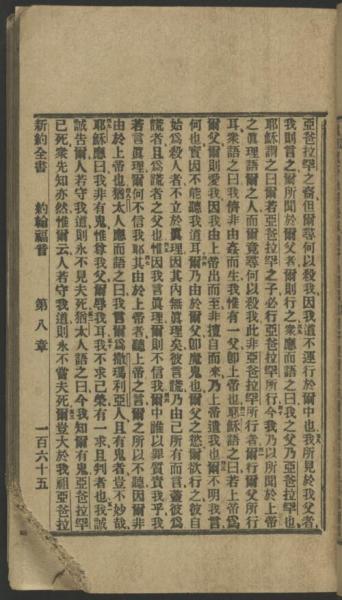 亞爸拉罕之裔但爾尋何以殺我因我道不運行於爾中也我所見於我父者
我則言之爾所聞於爾父者爾則行之衆應而語之曰我之父乃亞爸拉罕也
耶穌謂之曰爾若亞爸拉罕之子必行亞爸拉罕所行今我乃以所聞於上帝
之眞理語爾之人而爾竟尋何以殺我此非亞爸拉罕所行者爾行爾父所行
耳衆語之曰我儕非由姦而生我惟有一父卽上帝也耶穌語之曰若上帝爲
爾父爾則愛我因我由上帝出而至非擅自而來乃上帝遣我也爾不明我言
何也實因不能聽我道耳爾乃由於爾父卽魔鬼也爾父之慾爾欲行之彼自
始爲殺人者不立於眞理因其內無眞理矣彼言謊乃由己所有而言蓋彼爲
謊者且爲謊者之父也惟因我言眞理爾則不信我爾中誰以罪質責我乎我
若言眞理爾何不信我耶其由於上帝者聽上帝之言爾之所以不聽因爾非
由於上帝也猶太人應而語之曰我言爾爲撒瑪利亞人且有鬼者豈不妙哉
耶穌應曰我非有鬼惟尊我父爾辱我耳我不求己榮有一求且判者也我誠
誠告爾人若守我道則永不見夫死猶太人語之曰今我知爾有鬼亞爸拉罕
已死衆先知亦然惟爾云人若守我道則永不嘗夫死爾豈大於我祖亞爸拉
新約全書 約翰福音 第八章 一百六十五